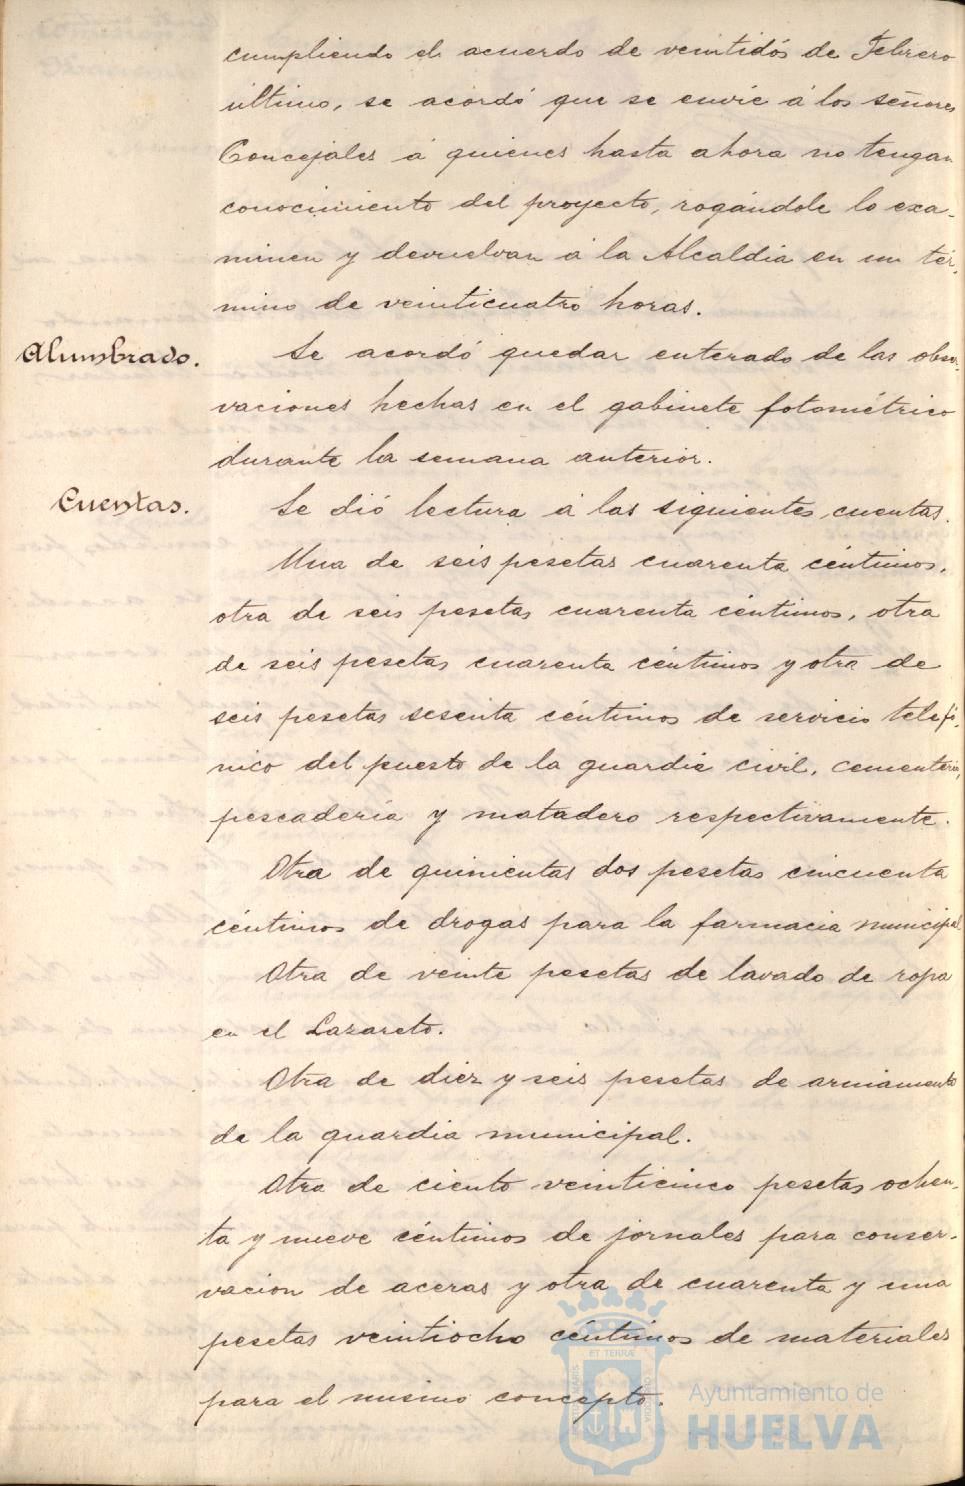 cumpliendo el acuerdo de veintidós de Febrero
último, se acordó que se envie á los señores
Concejales á quienes hasta ahora no tengan
conocimiento del proyecto, rogándole lo exa-
minen y devuelvan á la Alcaldia en un tér-
mino de veinticuatro horas.
Alumbrado. Se acordó quedar enterado de las obser-
vaciones hechas en el gabinete fotométrico
durante la semana anterior.
Cuentas. Se dió lectura á las siguientes cuentas.
Una de seis pesetas cuarenta céntimos,
otra de seis pesetas cuarenta céntimos, otra
de seis pesetas cuarenta céntimos y otra de
seis pesetas sesenta céntimos de servicio telefó-
nico del puesto de la guardia civil, cementerio,
pescaderia y matadero respectivamente.
Otra de quinientas dos pesetas cincuenta
céntimos de drogas para la farmacia municipal.
Otra de veinte pesetas de lavado de ropa
en el Lazareto.
Otra de diez y seis pesetas de armamento
de la guardia municipal.
Otra de ciento veinticinco pesetas ochen-
ta y nueve céntimos de jornales para conser-
vacion de aceras y otra de cuarenta y una
pesetas veintiocho céntimos de materiales
para el mismo concepto.
ET TERRÆ
Ayuntamiento de
HUELVA